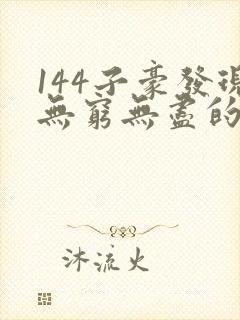 144子豪發現
無窮無盡的
沐流火